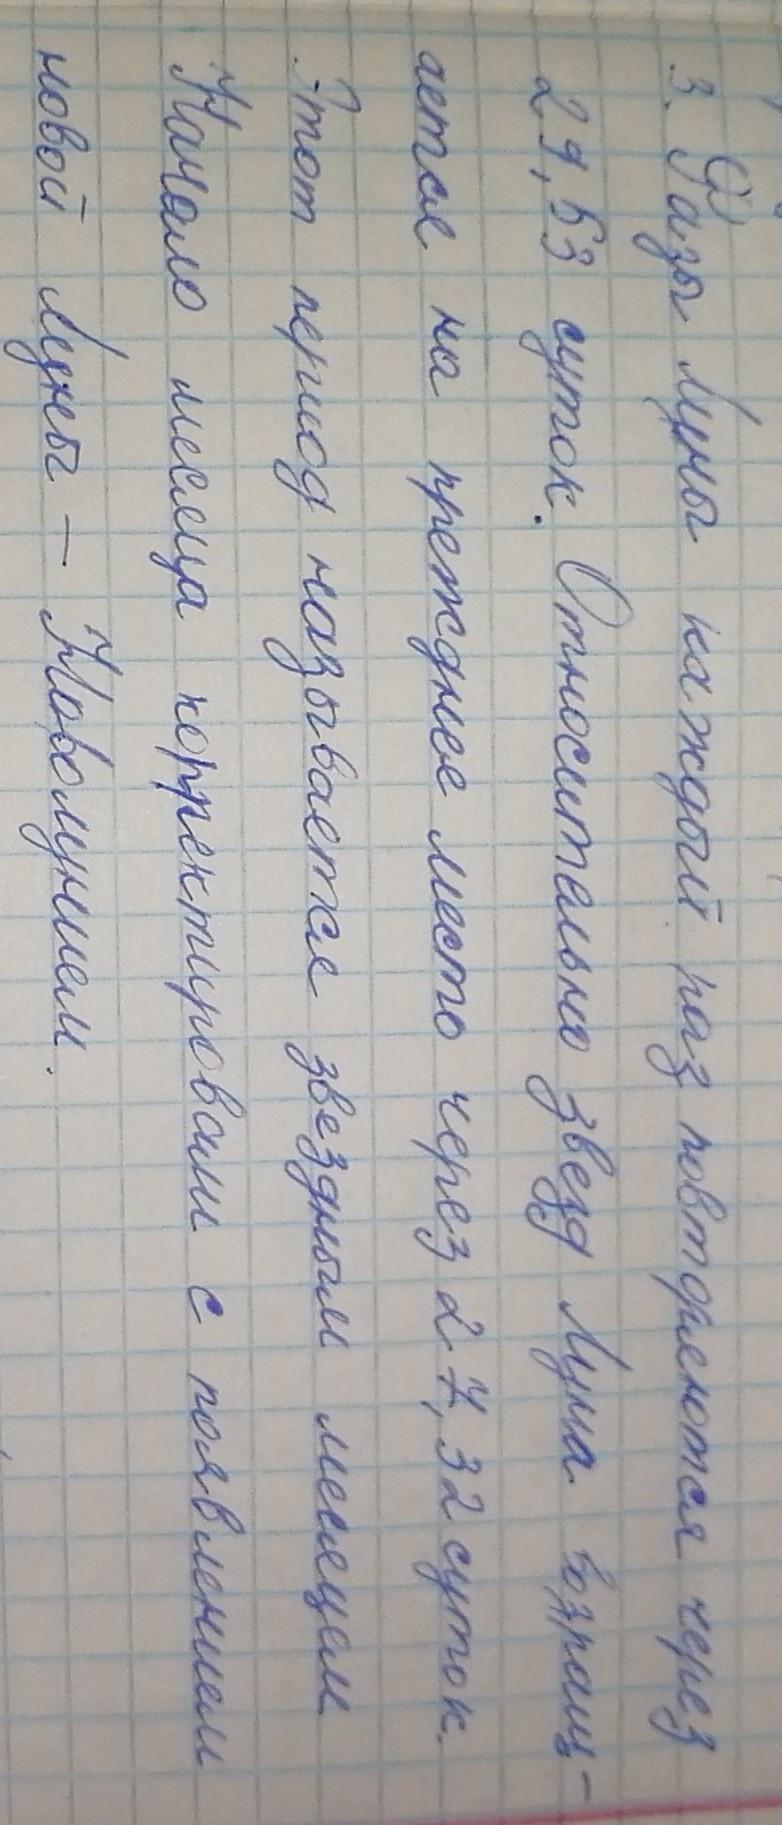 3. Фазы Луны каждый раз повторяются через
29,53 суток. Относительно звезд Луна возращ-
ается на прежднее место через 27,32 суток.
Этот период называется звездным месяцем
Начало месяца корректировали с появлением
новой Луны – Новолунием.